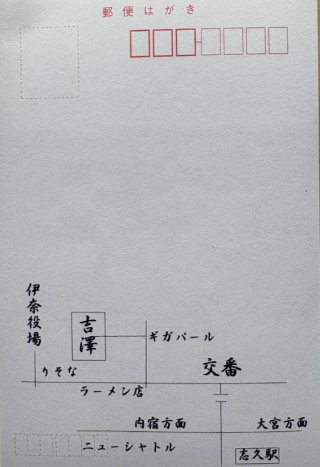 郵便はがき
伊奈役場
吉澤
ギガパール
りそな
交番
ラーメン店
内宿方面
大宮方面
ニューシャトル
志久駅